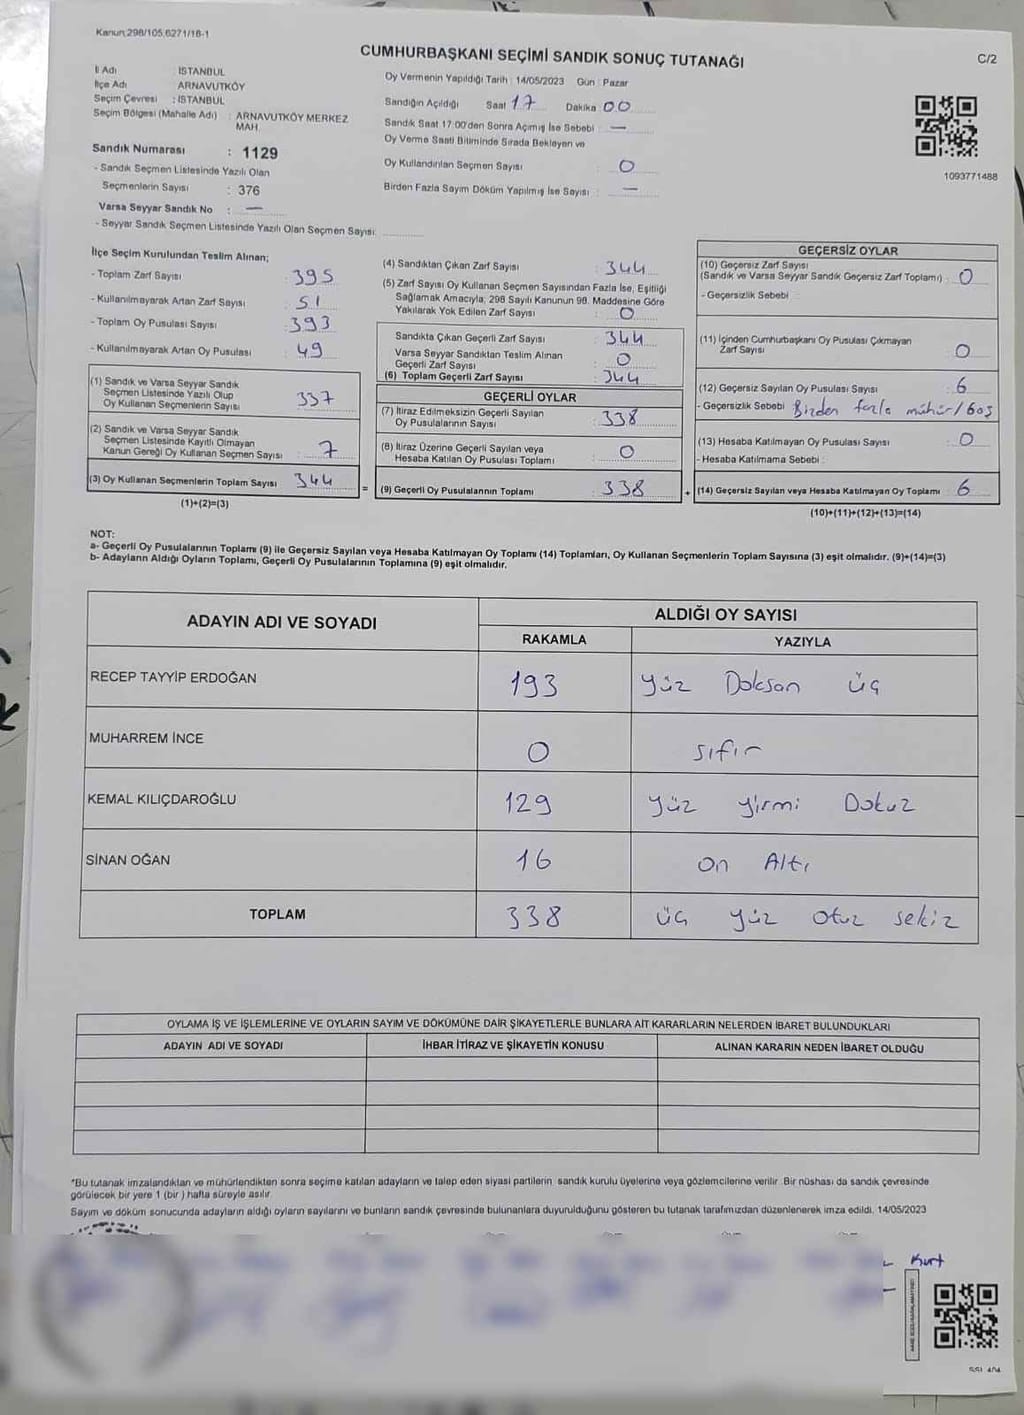 Kanun 298/105.6271/18-1
CUMHURBAŞKANI SEÇİMİ SANDIK SONUÇ TUTANAĞI
C/2
İl Adı : İSTANBUL
İlçe Adı : ARNAVUTKÖY
Seçim Çevresi : İSTANBUL
Seçim Bölgesi (Mahalle Adı) : ARNAVUTKÖY MERKEZ
MAH.
Sandık Numarası : 1129
- Sandık Seçmen Listesinde Yazılı Olan
Seçmenlerin Sayısı : 376
Varsa Seyyar Sandık No : —
- Seyyar Sandık Seçmen Listesinde Yazılı Olan Seçmen Sayısı:
Oy Vermenin Yapıldığı Tarih : 14/05/2023 Gün : Pazar
Sandığın Açıldığı Saat 17 Dakika 00
Sandık Saat 17:00'den Sonra Açımış İse Sebebi : —
Oy Verme Saati Bitiminde Sırada Bekleyen ve
Oy Kullandırılan Seçmen Sayısı : 0
Birden Fazla Sayım Döküm Yapılmış İse Sayısı : —
1093771488
İlçe Seçim Kurulundan Teslim Alınan;
- Toplam Zarf Sayısı : 395
- Kullanılmayarak Artan Zarf Sayısı : 51
- Toplam Oy Pusulası Sayısı : 393
- Kullanılmayarak Artan Oy Pusulası : 49
(1) Sandık ve Varsa Seyyar Sandık
Seçmen Listesinde Yazılı Olup
Oy Kullanan Seçmenlerin Sayısı : 337
(2) Sandık ve Varsa Seyyar Sandık
Seçmen Listesinde Kayıtlı Olmayan
Kanun Gereği Oy Kullanan Seçmen Sayısı : 7
(3) Oy Kullanan Seçmenlerin Toplam Sayısı : 344
(1)+(2)=(3)
(4) Sandıktan Çıkan Zarf Sayısı : 344
(5) Zarf Sayısı Oy Kullanan Seçmen Sayısından Fazla İse, Eşitliği
Sağlamak Amacıyla; 298 Sayılı Kanunun 98. Maddesine Göre
Yakılarak Yok Edilen Zarf Sayısı : 0
Sandıkta Çıkan Geçerli Zarf Sayısı : 344
Varsa Seyyar Sandıktan Teslim Alınan
Geçerli Zarf Sayısı : 0
(6) Toplam Geçerli Zarf Sayısı : 344
GEÇERLİ OYLAR
(7) İtiraz Edilmeksizin Geçerli Sayılan
Oy Pusulalarının Sayısı : 338
(8) İtiraz Üzerine Geçerli Sayılan veya
Hesaba Katılan Oy Pusulası Toplamı : 0
= (9) Geçerli Oy Pusulalarının Toplamı : 338
GEÇERSİZ OYLAR
(10) Geçersiz Zarf Sayısı
(Sandık ve Varsa Seyyar Sandık Geçersiz Zarf Toplamı) : 0
- Geçersizlik Sebebi :
(11) İçinden Cumhurbaşkanı Oy Pusulası Çıkmayan
Zarf Sayısı : 0
(12) Geçersiz Sayılan Oy Pusulası Sayısı : 6
- Geçersizlik Sebebi Birden fazla mühür/Boş
(13) Hesaba Katılmayan Oy Pusulası Sayısı : 0
- Hesaba Katılmama Sebebi :
+ (14) Geçersiz Sayılan veya Hesaba Katılmayan Oy Toplamı : 6
(10)+(11)+(12)+(13)=(14)
NOT:
a- Geçerli Oy Pusulalarının Toplamı (9) ile Geçersiz Sayılan veya Hesaba Katılmayan Oy Toplamı (14) Toplamları, Oy Kullanan Seçmenlerin Toplam Sayısına (3) eşit olmalıdır. (9)+(14)=(3)
b- Adayların Aldığı Oyların Toplamı, Geçerli Oy Pusulalarının Toplamına (9) eşit olmalıdır.
ADAYIN ADI VE SOYADI
ALDIĞI OY SAYISI
RAKAMLA YAZIYLA
RECEP TAYYİP ERDOĞAN 193 Yüz Doksan üç
MUHARREM İNCE 0 sıfır
KEMAL KILIÇDAROĞLU 129 Yüz Yirmi Dokuz
SİNAN OĞAN 16 On Altı
TOPLAM 338 üç yüz otuz sekiz
OYLAMA İŞ VE İŞLEMLERİNE VE OYLARIN SAYIM VE DÖKÜMÜNE DAİR ŞİKAYETLERLE BUNLARA AİT KARARLARIN NELERDEN İBARET BULUNDUKLARI
ADAYIN ADI VE SOYADI İHBAR İTİRAZ VE ŞİKAYETİN KONUSU ALINAN KARARIN NEDEN İBARET OLDUĞU
*Bu tutanak imzalandıktan ve mühürlendikten sonra seçime katılan adayların ve talep eden siyasi partilerin sandık kurulu üyelerine veya gözlemcilerine verilir. Bir nüshası da sandık çevresinde
görülecek bir yere 1 (bir ) hafta süreyle asılır
Sayım ve döküm sonucunda adayların aldığı oyların sayılarını ve bunların sandık çevresinde bulunanlara duyurulduğunu gösteren bu tutanak tarafımızdan düzenlenerek imza edildi. 14/05/2023
Kurt